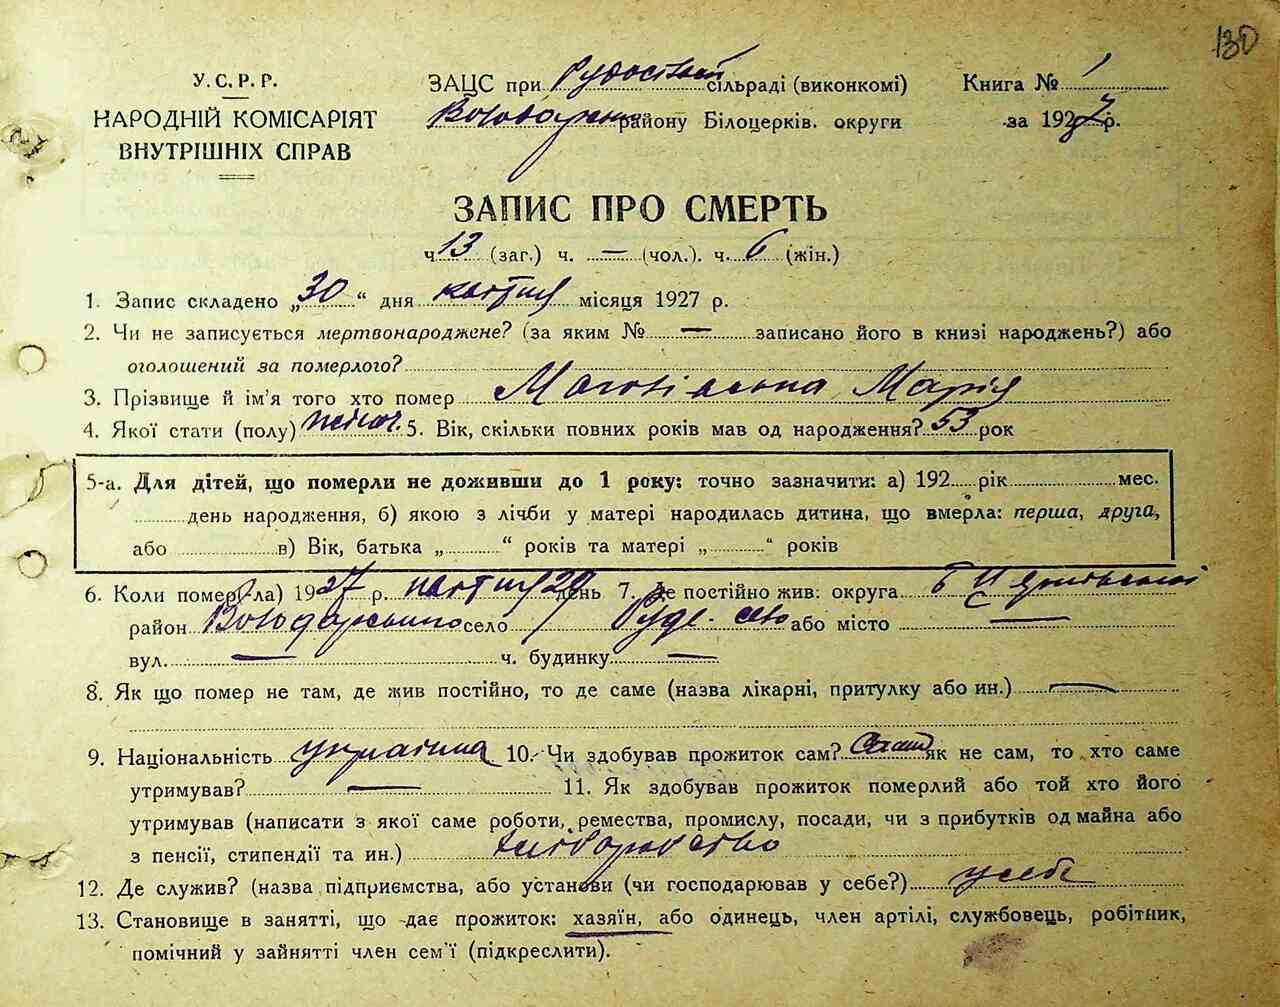 130
У.С.Р.Р.
НАРОДНІЙ КОМІСАРІЯТ
ВНУТРІШНІХ СПРАВ
ЗАЦС при сільраді (виконкомі)
Володарск. району Білоцерків. округи
Книга № 1
за 1927 р.
ЗАПИС ПРО СМЕРТЬ
ч 13 (заг.) ч. — (чол.). ч. 6 (жін.)
1. Запис складено „30“ дня квітня місяця 1927 р.
2. Чи не записується мертвонароджене? (за яким № — записано його в книзі народжень?) або
оголошений за померлого?
3. Прізвище й ім'я того хто помер Марія
4. Якої стати (полу) жіноч. 5. Вік, скільки повних років мав од народження? 53 рок
5-а. Для дітей, що померли не доживши до 1 року: точно зазначити: а) 192 рік мес.
день народження, б) якою з лічби у матері народилась дитина, що вмерла: перша, друга,
або в) Вік, батька „ “ років та матері „ “ років
6. Коли помер(ла) 1927 р. квітня 29 день 7. Де постійно жив: округа Б Церківської
район Володарського село Руде-село або місто —
вул. — ч. будинку —
8. Як що помер не там, де жив постійно, то де саме (назва лікарні, притулку або ин.) —
9. Національність українка 10. Чи здобував прожиток сам? Сам як не сам, то хто саме
утримував? — 11. Як здобував прожиток померлий або той хто його
утримував (написати з якої саме роботи, ремества, промислу, посади, чи з прибутків од майна або
з пенсії, стипендії та ин.) хліборобство
12. Де служив? (назва підприємства, або установи (чи господарював у себе?) у себе
13. Становище в занятті, що дає прожиток: хазяїн, або одинець, член артілі, службовець, робітник,
помічний у зайнятті член сем'ї (підкреслити).